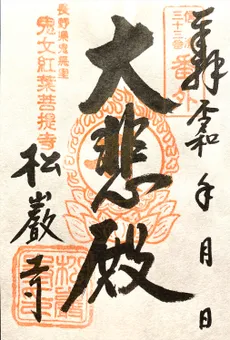 奉拝
令和 年 月 日
三十三番
番外
大悲殿
長野県鬼無里
鬼女紅葉菩提寺
松巖寺